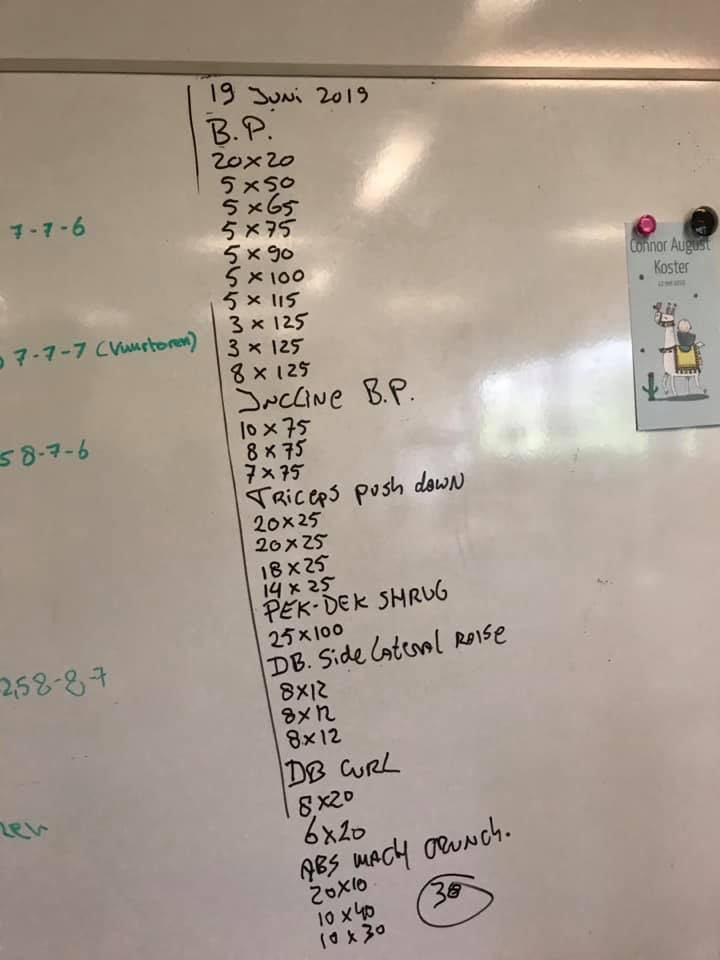 19 Juni 2019
B.P.
20x20
5x50
5x65
5x75
5x90
5x100
5x115
3x125
3x125
8x125
Incline B.P.
10x75
8x75
7x75
Triceps push down
20x25
20x25
18x25
14x25
PEK-DEK SHRUG
25x100
DB. Side Lateral Raise
8x12
8x12
8x12
DB CURL
8x20
6x20
ABS MACH CRUNCH.
20x10
10x40
10x30
7-7-6
7-7-7 (Vuurtoren)
58-7-6
2,58-8-7
Connor August
Koster